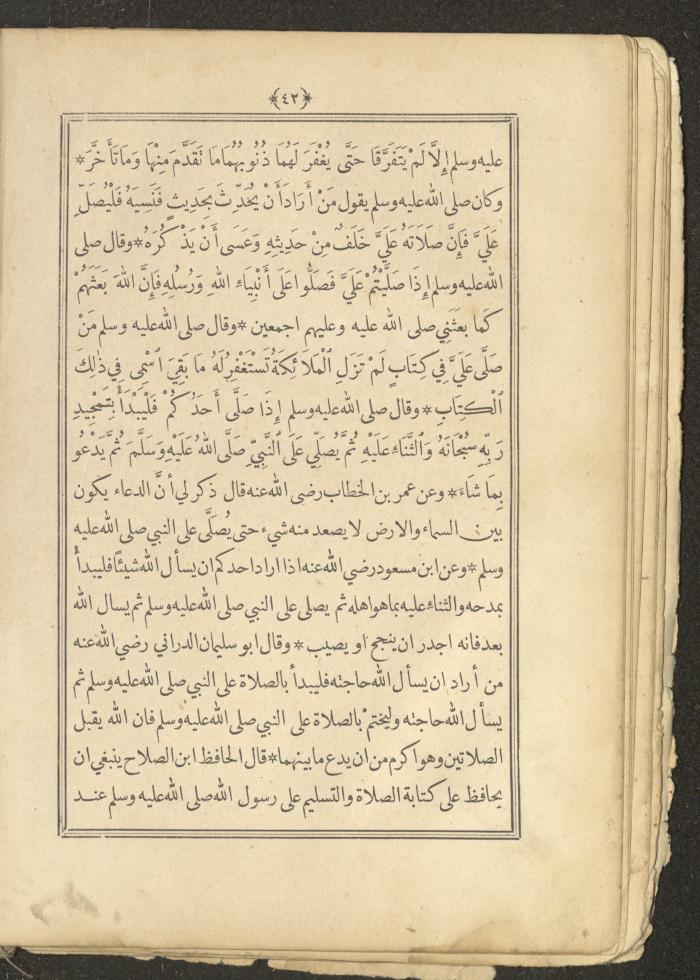 ﴿٤٢﴾
عليه وسلم إِلَّا لَمْ يَتَفَرَّقَا حَتَّى يُغْفَرَ لَهُمَا ذُنُوبُهُمَا مَا تَقَدَّمَ مِنْهَا وَمَا تَأَخَّرَ *
وكان صلى الله عليه وسلم يقول مَنْ أَرَادَ أَنْ يُحَدِّثَ بِحَدِيثٍ فَنَسِيَهُ فَلْيُصَلِّ
عَلَيَّ فَإِنَّ صَلَاتَهُ عَلَيَّ خَلَفٌ مِنْ حَدِيثِهِ وَعَسَى أَنْ يَذْكُرَهُ * وقال صلى
الله عليه وسلم إِذَا صَلَّيْتُمْ عَلَيَّ فَصَلُّوا عَلَى أَنْبِيَاءِ اللهِ وَرُسُلِهِ فَإِنَّ اللهَ بَعَثَهُمْ
كَمَا بَعَثَنِي صلى الله عليه وعليهم اجمعين * وقال صلى الله عليه وسلم مَنْ
صَلَّى عَلَيَّ فِي كِتَابٍ لَمْ تَزَلِ الْمَلَائِكَةُ تَسْتَغْفِرُ لَهُ مَا بَقِيَ اسْمِي فِي ذٰلِكَ
الْكِتَابِ * وقال صلى الله عليه وسلم إِذَا صَلَّى أَحَدُكُمْ فَلْيَبْدَأْ بِتَمْجِيدِ
رَبِّهِ سُبْحَانَهُ وَالثَّنَاءِ عَلَيْهِ ثُمَّ يُصَلِّي عَلَى النَّبِيِّ صَلَّى اللهُ عَلَيْهِ وَسَلَّمَ ثُمَّ يَدْعُو
بِمَا شَاءَ * وعن عمر بن الخطاب رضى الله عنه قال ذكر لي أنَّ الدعاء يكون
بين السماء والارض لا يصعد منه شيء حتى يُصَلَّى على النبي صلى الله عليه
وسلم * وعن ابن مسعود رضي الله عنه اذا اراد احدكم ان يسأل الله شيئًا فليبدأْ
بمدحه والثناء عليه بما هو اهله ثم يصلى على النبي صلى الله عليه وسلم ثم يسال الله
بعد فانه اجدر ان ينجح او يصيب * وقال ابو سليمان الدراني رضي الله عنه
من أراد ان يسأل الله حاجته فليبدأ بالصلاة على النبي صلى الله عليه وسلم ثم
يسأل الله حاجته وليختمْ بالصلاة على النبي صلى الله عليه وسلم فان الله يقبل
الصلاتين وهو اكرم من ان يدع ما بينهما * قال الحافظ ابن الصلاح ينبغي ان
يحافظ على كتابة الصلاة والتسليم على رسول الله صلى الله عليه وسلم عند